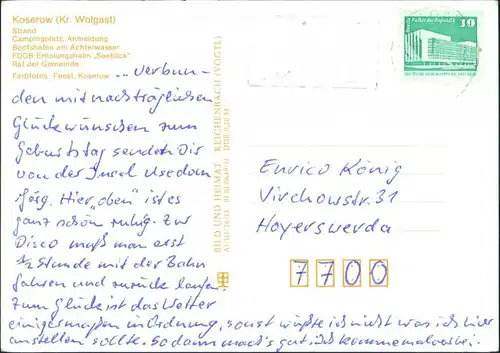 Koserow (Kr. Wolgast)
Strand
Campingplatz, Anmeldung
Bootshafen am Achterwasser
FDGB-Erholungsheim „Seeblick"
Rat der Gemeinde
Farbfotos: Feest, Koserow
... verbun-
den mit nachträglichen
Glückwünschen zum
Geburtstag sendet Dir
von der Insel Usedom
Jörg. Hier „oben" ist es
ganz schön ruhig. Zur
Disco muß man erst
½ Stunde mit der Bahn
fahren und zurück laufen.
Zum Glück ist das Wetter
einigermaßen in Ordnung, sonst wüßte ich nicht was ich hier
anstellen sollte. So dann mach's gut
BILD UND HEIMAT REICHENBACH (VOGTL)
10
Enrico König
Virchowstr. 31
Hoyerswerda
7700